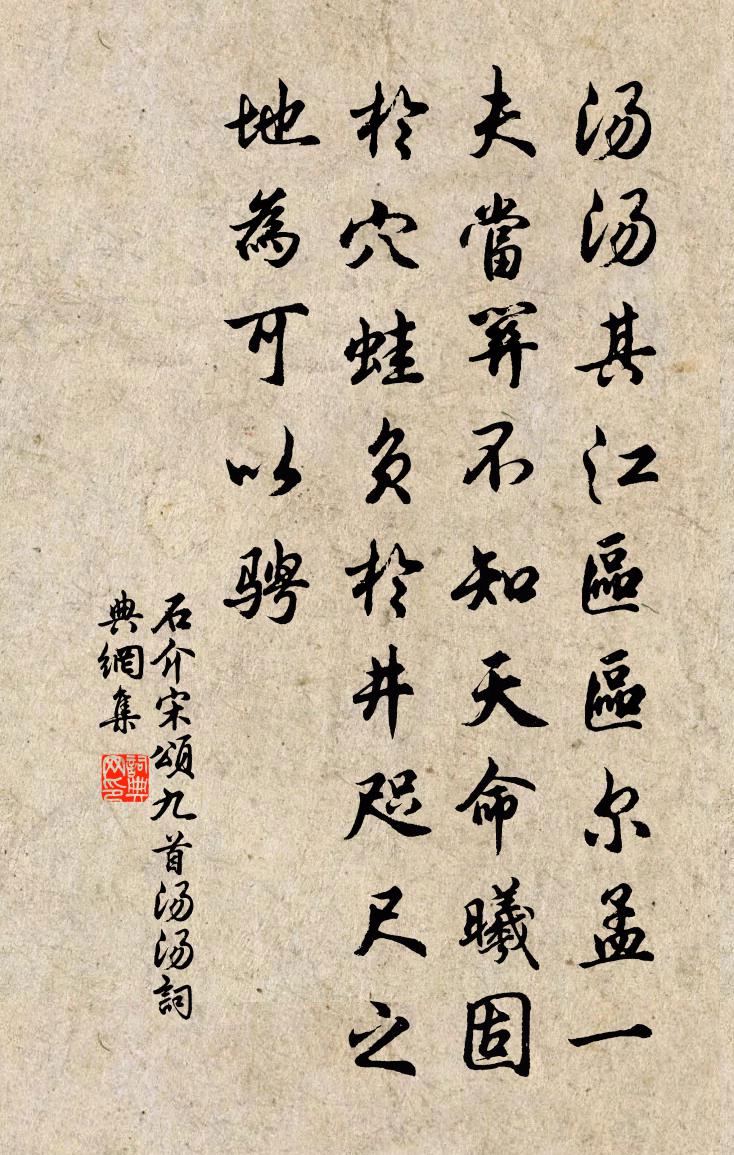 汤汤其江區區尔孟一
夫當關不知天命曦固
於穴蛙负於井咫尺之
地為可以骋
石介宋頌九首汤汤詞
典網集
詞典
网印